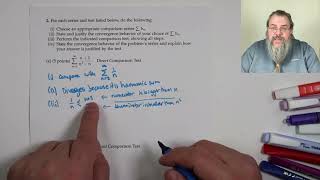 2. For each series and test listed below, do the following:
(i) Choose an appropriate comparison series
(ii) State and justify the convergence behavior of your choice of
(iii) Perform the indicated comparison test, showing all steps.
(iv) State the convergence behavior of the problem's series and explain how your answer is justified by the test.
Direct Comparison Test
(i) compare with ∑ 1/n
(ii) Diverges because its harmonic sum
(iii) 1/n ≤ n+1 ← numerator is bigger than n
← denominator is smaller than n²
Comparison Test